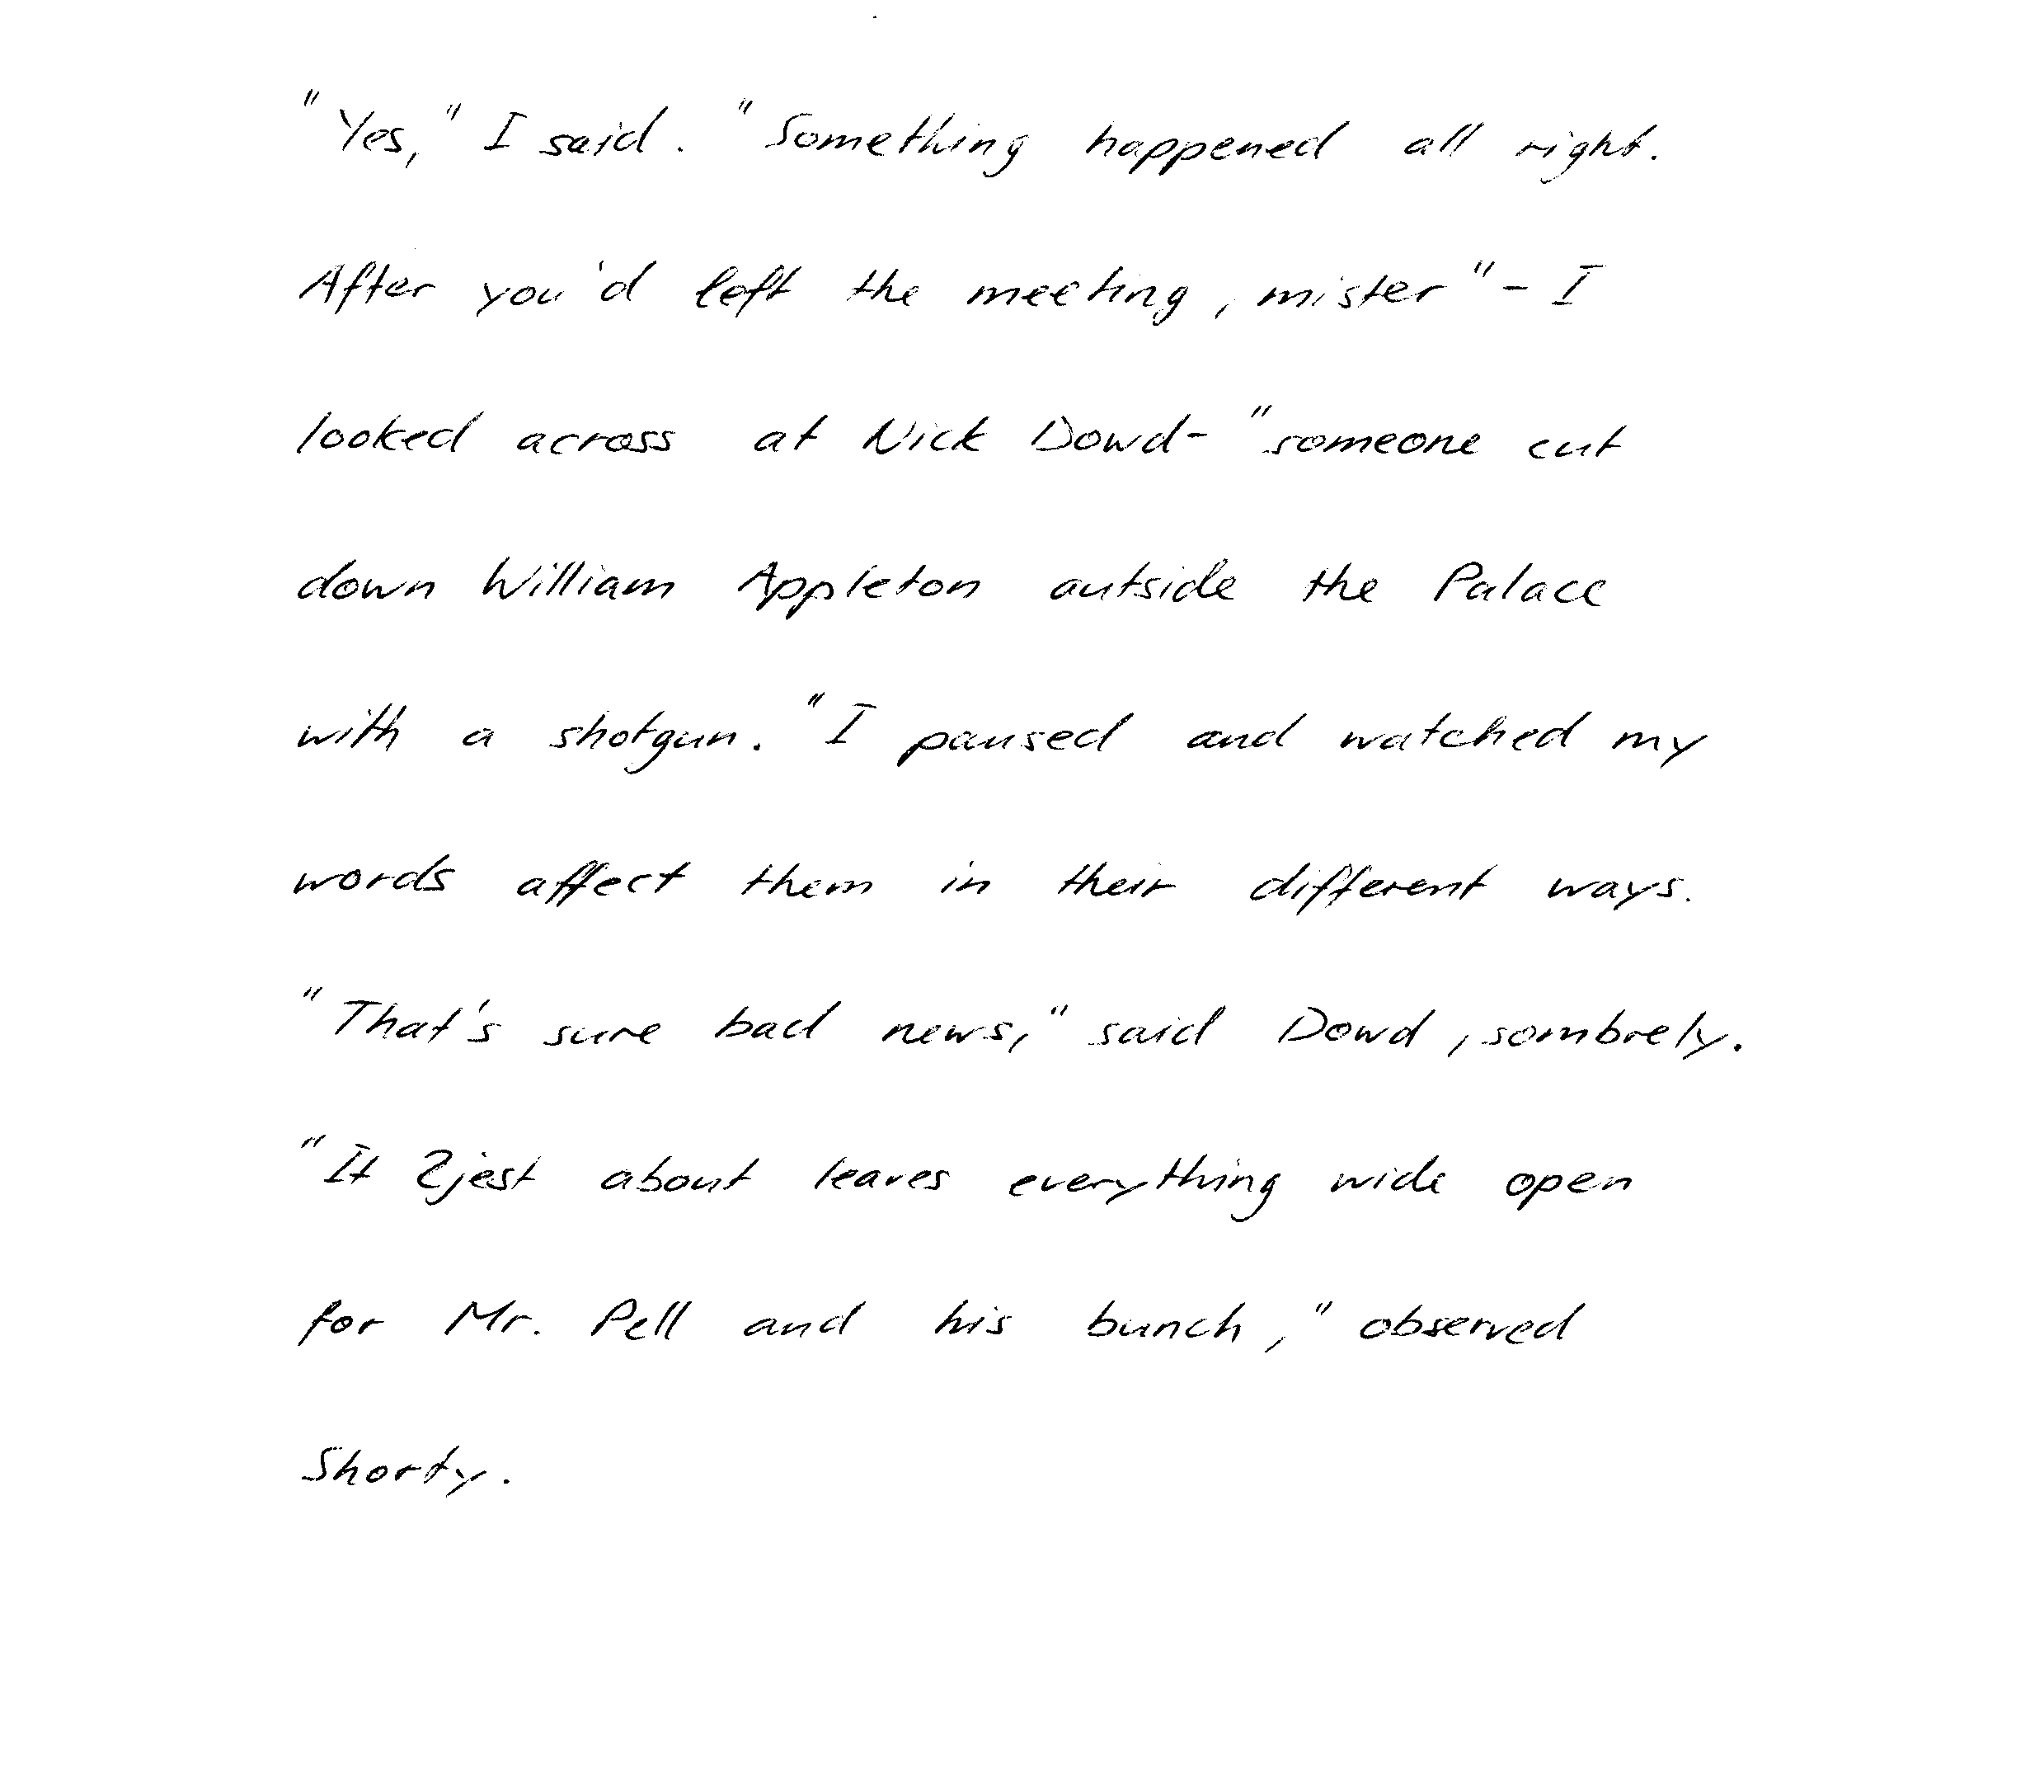 "Yes," I said. "Something happened all right.
After you'd left the meeting, mister" - I
looked across at Nick Dowd- "someone cut
down William Appleton outside the Palace
with a shotgun." I paused and watched my
words affect them in their different ways.
"That's sure bad news," said Dowd, sombrely.
"It 2jest about leaves everything wide open
for Mr. Pell and his bunch," observed
Shorty.